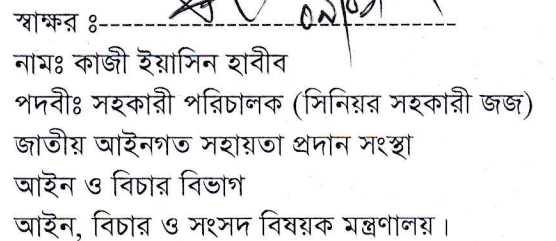 স্বাক্ষর ঃ-----------------------------------------
নামঃ কাজী ইয়াসিন হাবীব
পদবীঃ সহকারী পরিচালক (সিনিয়র সহকারী জজ)
জাতীয় আইনগত সহায়তা প্রদান সংস্থা
আইন ও বিচার বিভাগ
আইন, বিচার ও সংসদ বিষয়ক মন্ত্রণালয়।